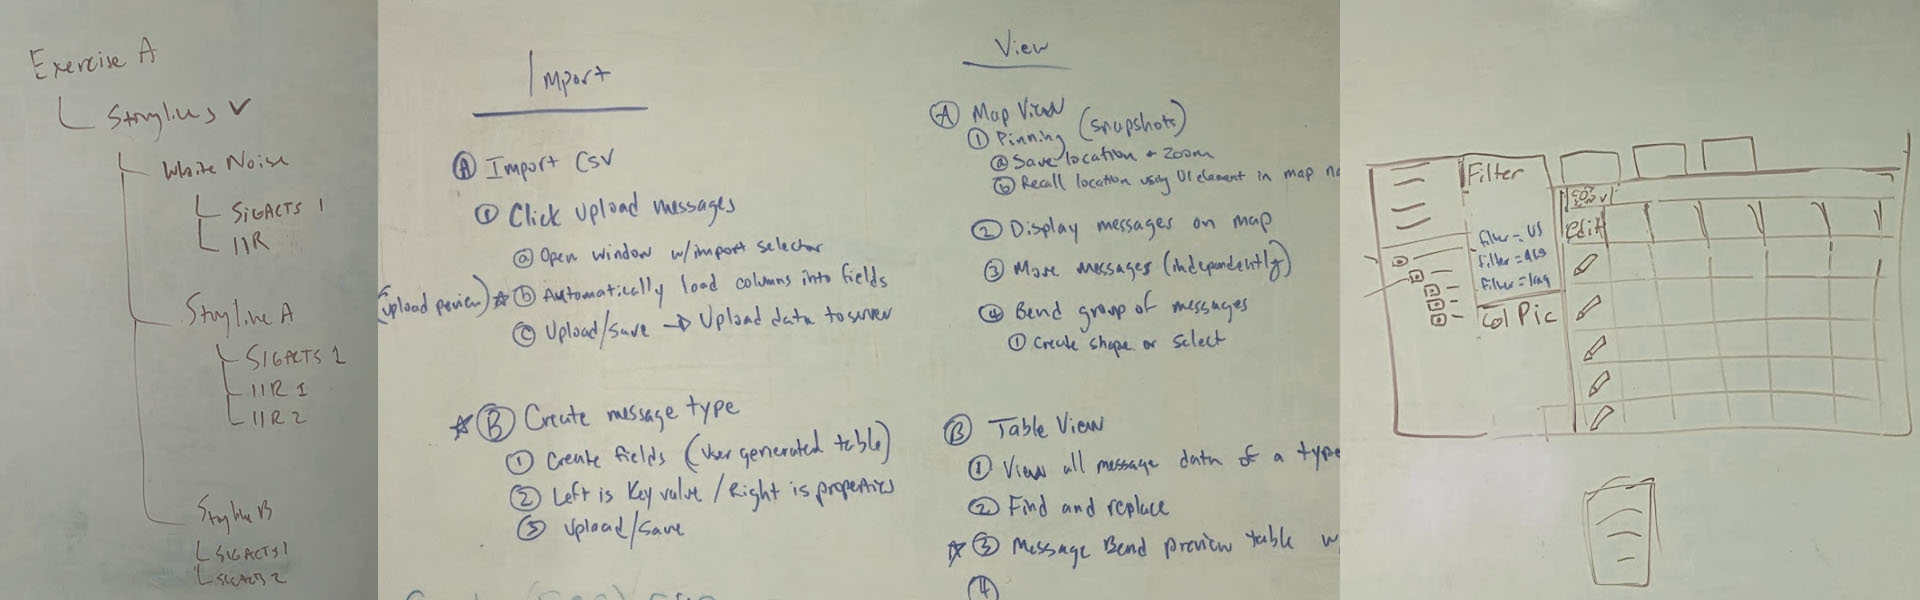 Exercise A
Storylines ✓
White Noise
SIGACTS 1
IIR
Storyline A
SIGACTS 1
IIR 1
IIR 2
Storyline B
SIGACTS 1
SIGACTS 2
Import
Ⓐ Import CSV
① Click Upload messages
ⓐ Open window w/import selector
☆ ⓑ Automatically load columns into fields
ⓒ Upload/Save → Upload data to server
☆ Ⓑ Create message type
① Create fields (User generated table)
② Left is Key value / Right is properties
③ Upload/Save
View
Ⓐ Map View
① Pinning (snapshots)
ⓐ Save location + Zoom
ⓑ Recall location using UI element in map
② Display messages on map
③ Move messages (independently)
④ Bend group of messages
① Create shape or select
Ⓑ Table View
① View all message data of a type
② Find and replace
☆ ③ Message Bend preview table w
④
Filter
Filter = US
Filter =
Filter = Iraq
Col Pic
Edit